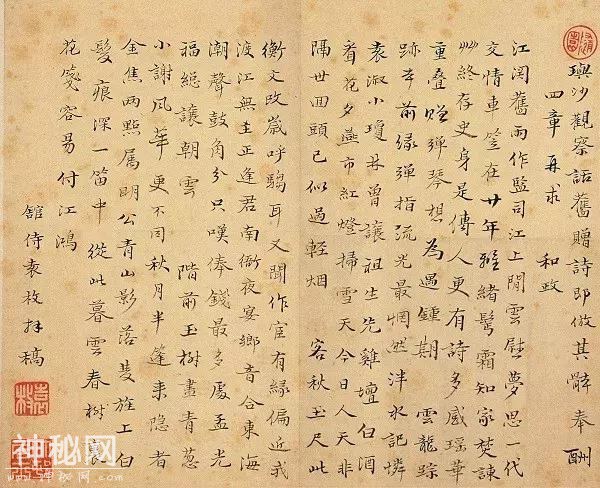 璵沙觀察話舊贈詩即倣其辭奉酬
四章再求 和政
江関舊雨作監司江上閒雲慰夢思一代
交情車笠在廿年雅緒鬢霜知家焚諫
艸終存史身是傳人更有詩多感瑤華
重叠贈彈琴想為遇鍾期 雲龍踪
跡前緣彈指流光最惘然泮水記憐
袁淑小瓊林曾讓祖生先雞壇白酒
看花夕燕市紅燈掃雪天今日人天非
隔世回頭已似過輕烟 客秋玉尺此
衡文改歲呼騶耳又聞作宦有緣偏近我
渡江無主正逢君南衙夜宴鄉音合東海
潮聲鼓角分只嘆俸錢最多處孟光
福總讓朝雲 階前玉樹畫青蔥
小謝風華更不同秋月半篷来隱者
金焦兩點属明公青山影落雙旌上白
髮痕深一笛中從此暮雲春樹裏
花箋容易付江鴻
館侍袁枚拜稿
袁枚
神秘网
www.shenmiwang.com